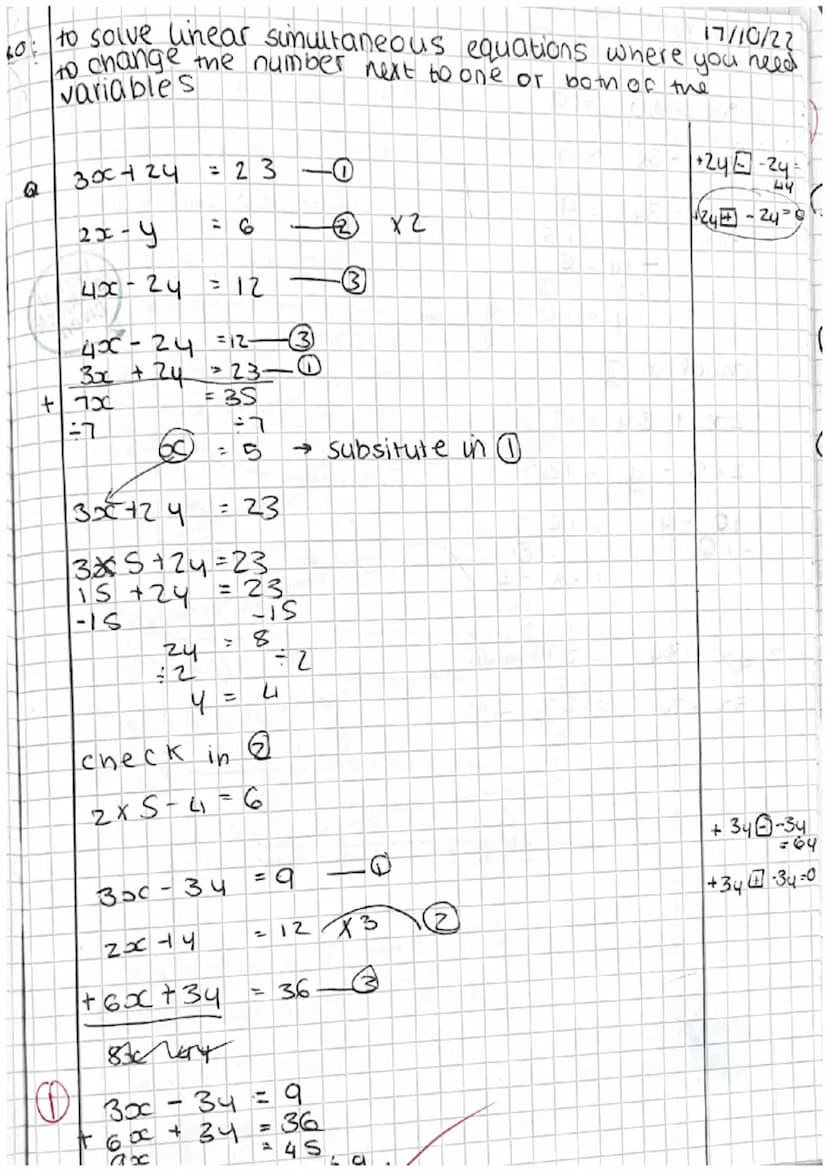 17/10/22
LO: to solve linear simultaneous equations where you need
to change the number next to one or both of the
variables
Q 3x + 2y = 23 — ①
+2y ⊟ -2y =
4y
2x - y = 6 — ② x2
+2y ⊞ - 2y = 0
4x - 2y = 12 — ③
4x - 2y = 12 — ③
3x + 2y = 23 — ①
+ 7x = 35
÷7 ÷7
x = 5 → subsitute in ①
3x + 2y = 23
3 x 5 + 2y = 23
15 + 2y = 23
-15 -15
2y = 8
÷2 ÷2
y = 4
check in ②
2 x 5 - 4 = 6
+ 3y ⊖ -3y
= 6y
3x - 3y = 9 — ①
+3y ⊞ -3y = 0
2x + y = 12 x3 ②
+ 6x + 3y = 36 — ③
① 3x - 3y = 9
+ 6x + 3y = 36
9x = 45